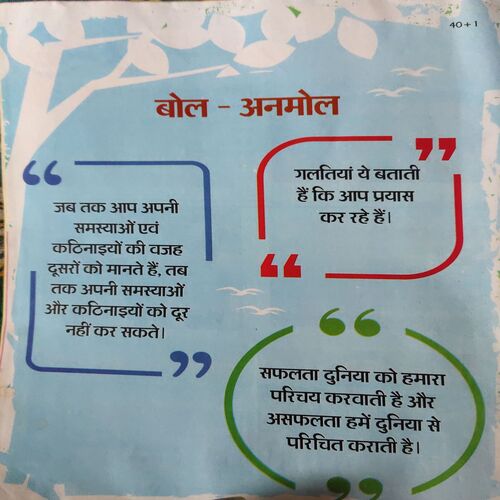 40+1
बोल - अनमोल
“
जब तक आप अपनी
समस्याओं एवं
कठिनाइयों की वजह
दूसरों को मानते हैं, तब
तक अपनी समस्याओं
और कठिनाइयों को दूर
नहीं कर सकते।
”
”
गलतियां ये बताती
हैं कि आप प्रयास
कर रहे हैं।
“
“
सफलता दुनिया को हमारा
परिचय करवाती है और
असफलता हमें दुनिया से
परिचित कराती है।
”